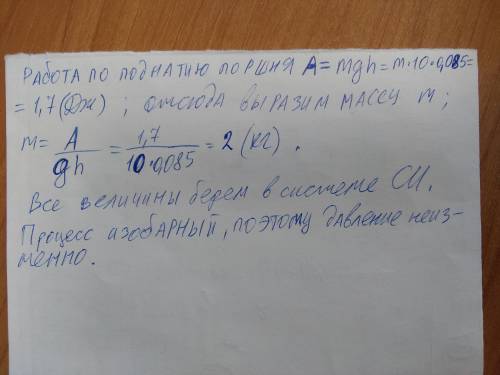 Работа по поднатию поршня A = mgh = m·10·0,085=
= 1,7 (Дж) ; отсюда выразим массу m ;
m = A/gh = 1,7/10·0,085 = 2 (кг) .
Все величины берем в системе СИ.
Процесс изобарный, поэтому давление неиз-
менно.